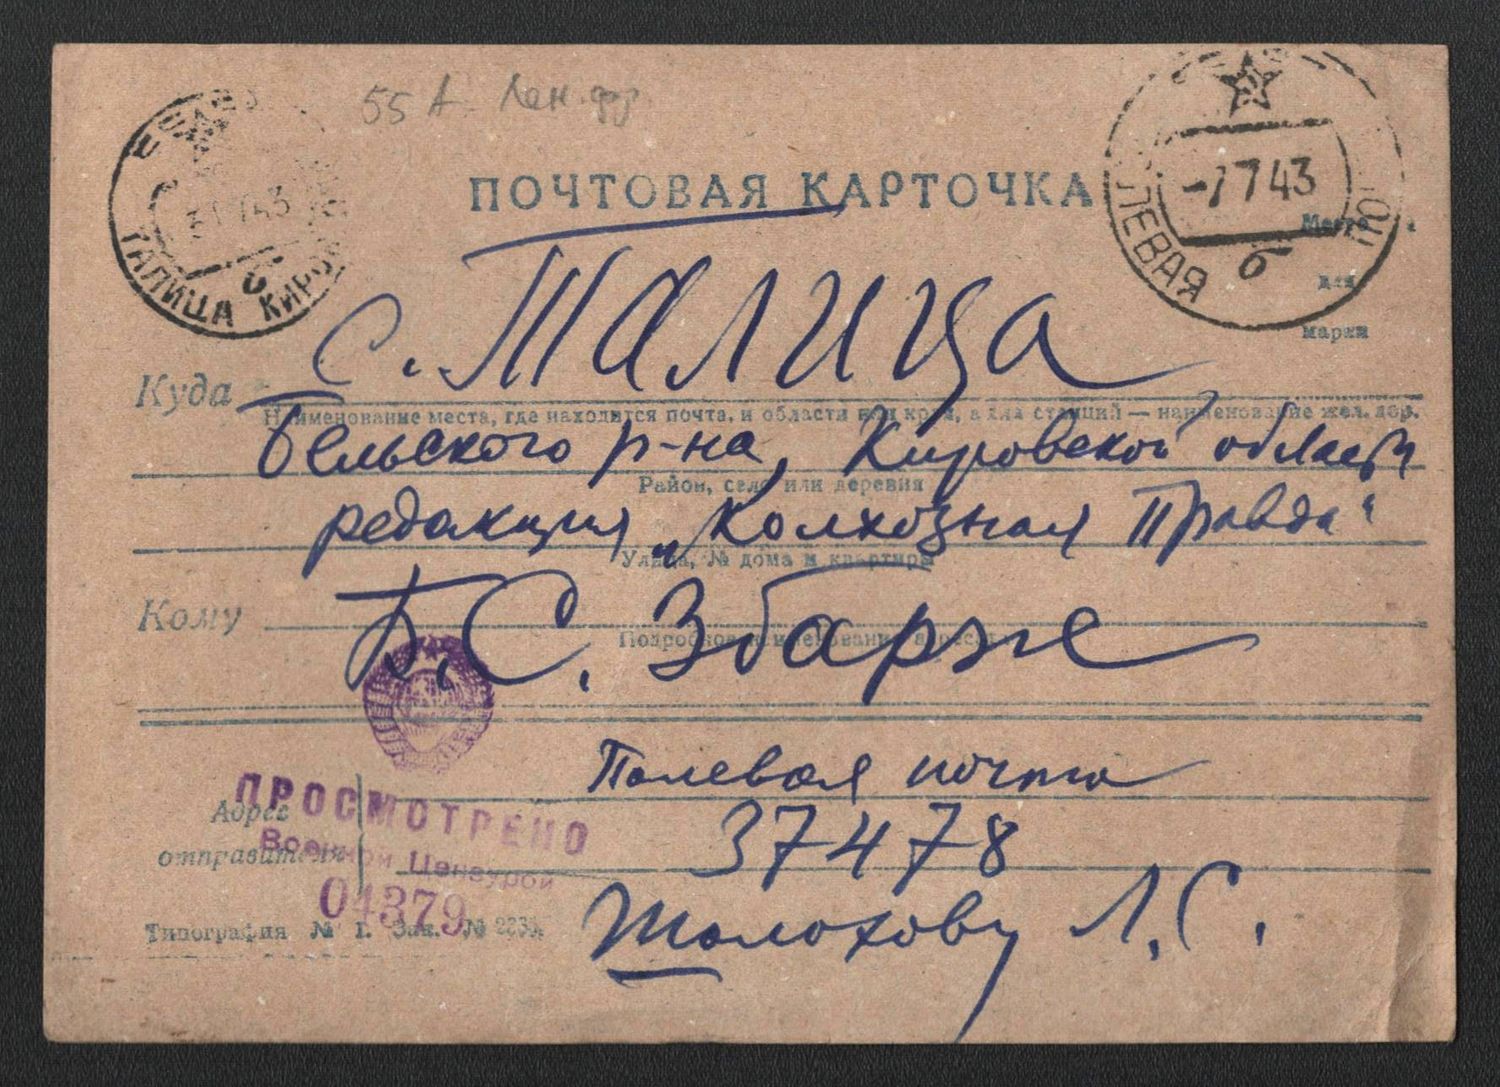 55 А. Лен. фр.
ПОЧТОВАЯ КАРТОЧКА
ТАЛИЦА КИРОВ
43
б
ПОЛЕВАЯ ПО
-7 7 43
б
Место
для
марки
с. Талица
Куда
Наименование места, где находится почта, и области или края, а для станций — наименование жел. дор.
Бельского р-на, Кировской области
Район, село или деревня
редакция „Колхозная Правда“
Улица, № дома и квартиры
Кому
Б. С. Збарже
Подробное наименование адресата
Полевая почта
37478
Шолохову Л. С.
Адрес
отправителя
ПРОСМОТРЕНО
Военной Цензурой
04379
Типография № 1. Зак. №